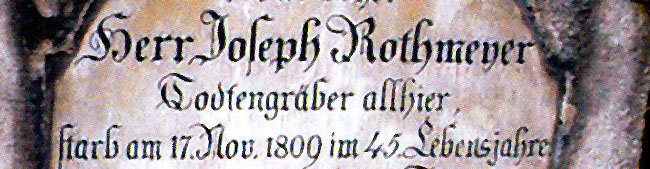 Herr Joseph Rothmeyer
Todtengräber allhier,
starb am 17. Nov. 1809 im 45. Lebensjahre